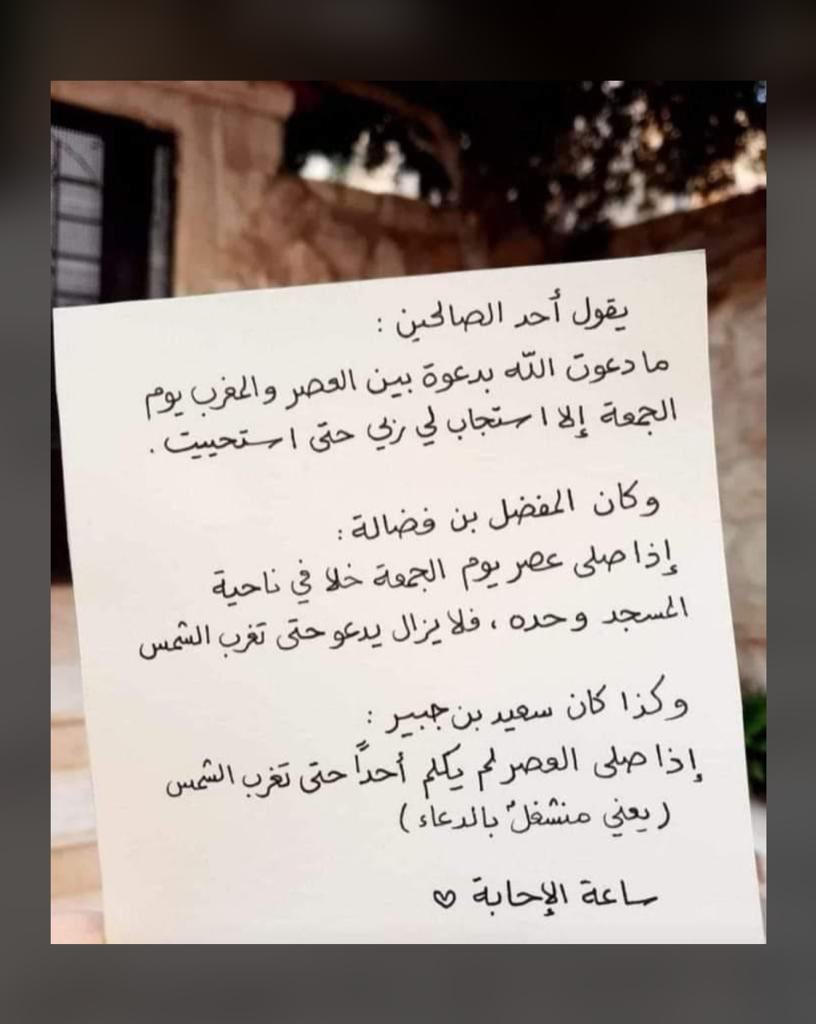 يقول أحد الصالحين :
ما دعوت الله بدعوة بين العصر والمغرب يوم
الجمعة إلا استجاب لي ربي حتى استحييت .
وكان المفضل بن فضالة :
إذا صلى عصر يوم الجمعة خلا في ناحية
المسجد وحده ، فلا يزال يدعو حتى تغرب الشمس
وكذا كان سعيد بن جبير :
إذا صلى العصر لم يكلم أحداً حتى تغرب الشمس
( يعني منشغلٌ بالدعاء )
ساعة الإحابة ♡